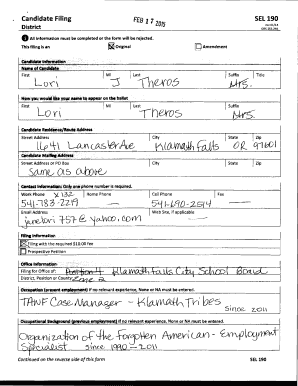 Candidate Filing
District
FEB 17 2015
SEL 190
All information must be completed or the form will be rejected.
This filing is an Original Amendment
Candidate Information
Name of Candidate
First MI Last Suffix Title
Lori J Theros Mrs.
How you would like your name to appear on the ballot
First MI Last Suffix
Lori Theros Mrs.
Candidate Residence/Route Address
Street Address City State Zip
1641 Lancaster Ave Klamath Falls OR 97601
Candidate Mailing Address
Street Address or PO Box City State Zip
same as above
Contact Information: Only one phone number is required.
Work Phone x 132 Home Phone Cell Phone Fax
541-783-2219 541-690-2514
Email Address Web Site, if applicable
junelori757@yahoo.com
Filing Information
Filing with the required $10.00 Fee
Prospective Petition
Office Information
Filing for Office of: Klamath Falls City School Board
District, Position or County: Zone 2
Occupation (present employment) If no relevant experience, None or NA must be entered.
TANF Case Manager - Klamath Tribes
since 2011
Occupational Background (previous employment) If no relevant experience, None or NA must be entered.
Organization of the Forgotten American - Employment
Specialist since 1990 - 2011
Continued on the reverse side of this form SEL 190